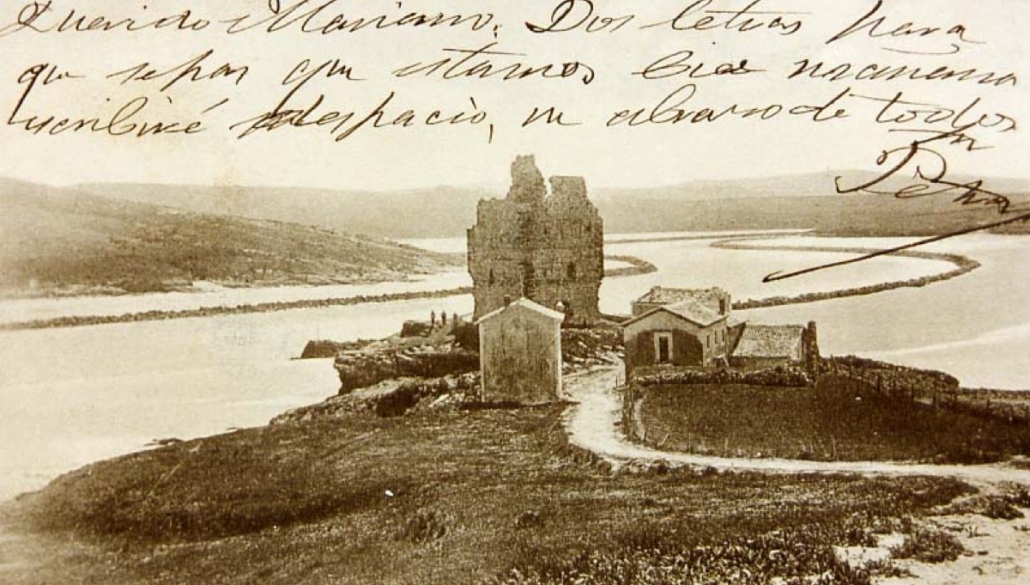 Querido Mariano. Dos letras para
que sepas que estamos bien mañana
escribiré despacio, un abrazo de todos
Tu